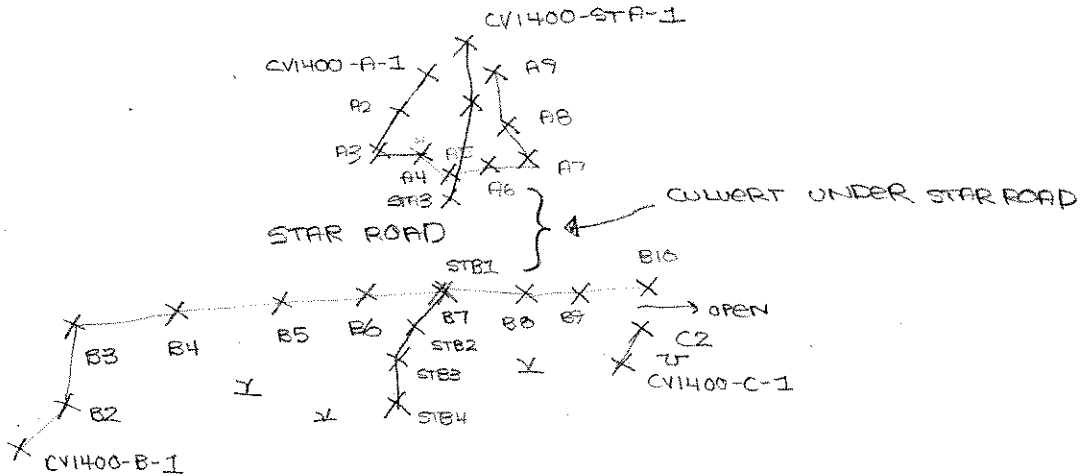 CV1400-STA-1
CV1400-A-1
A9
A2
A8
A3
A5
A7
A4
A6
STA3
CULVERT UNDER STAR ROAD
STAR ROAD
B10
STB1
OPEN
B3
B4
B5
B6
B7
B8
B9
C2
STB2
STB3
CV1400-C-1
B2
STB4
CV1400-B-1